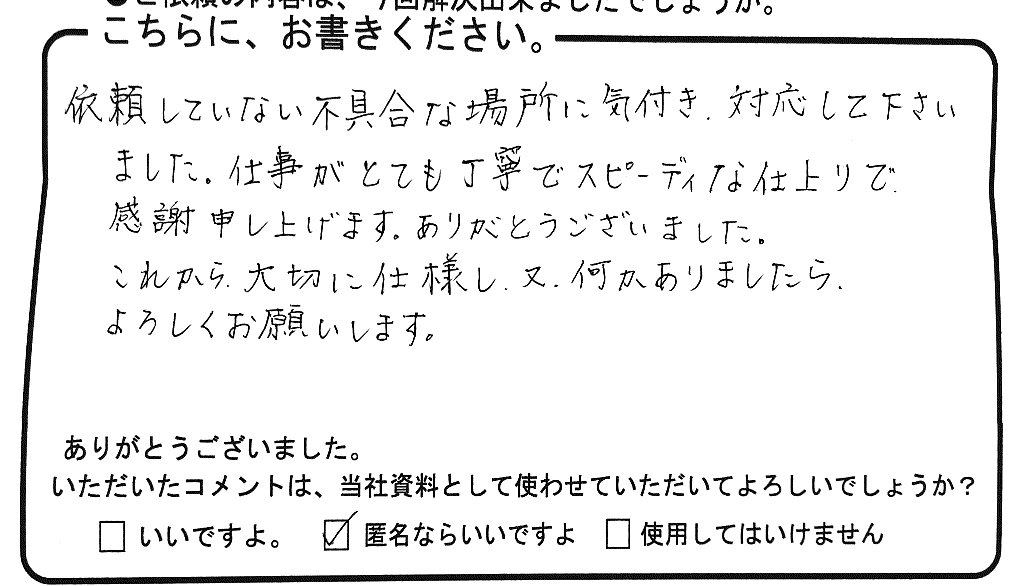 ●ご依頼の内容は、今回解決出来ましたでしょうか。
こちらに、お書きください。
依頼していない不具合な場所に気付き、対応して下さい
ました。仕事がとても丁寧でスピーディな仕上りで、
感謝申し上げます。ありがとうございました。
これから、大切に仕様し、又、何かありましたら、
よろしくお願いします。
ありがとうございました。
いただいたコメントは、当社資料として使わせていただいてよろしいでしょうか？
いいですよ。 匿名ならいいですよ 使用してはいけません